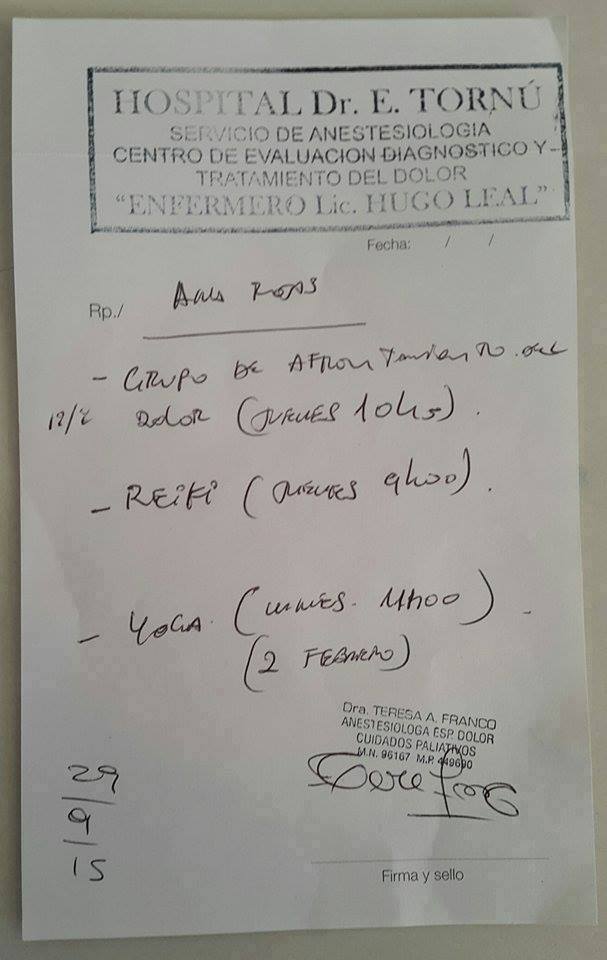 HOSPITAL Dr. E. TORNÚ
SERVICIO DE ANESTESIOLOGIA
CENTRO DE EVALUACION DIAGNOSTICO Y
TRATAMIENTO DEL DOLOR
"ENFERMERO Lic. HUGO LEAL"
Fecha: / /
Rp./ ROJAS
- GRUPO DE AFRONTAMIENTO DEL
DOLOR (JUEVES 10hs).
- REIKI (JUEVES 9h00).
- YOGA. (LUNES. 11h00).
(2 FEBRERO)
Dra. TERESA A. FRANCO
ANESTESIOLOGA ESP. DOLOR
CUIDADOS PALIATIVOS
M.N. 96167 M.P. 449690
29
9
15
Firma y sello